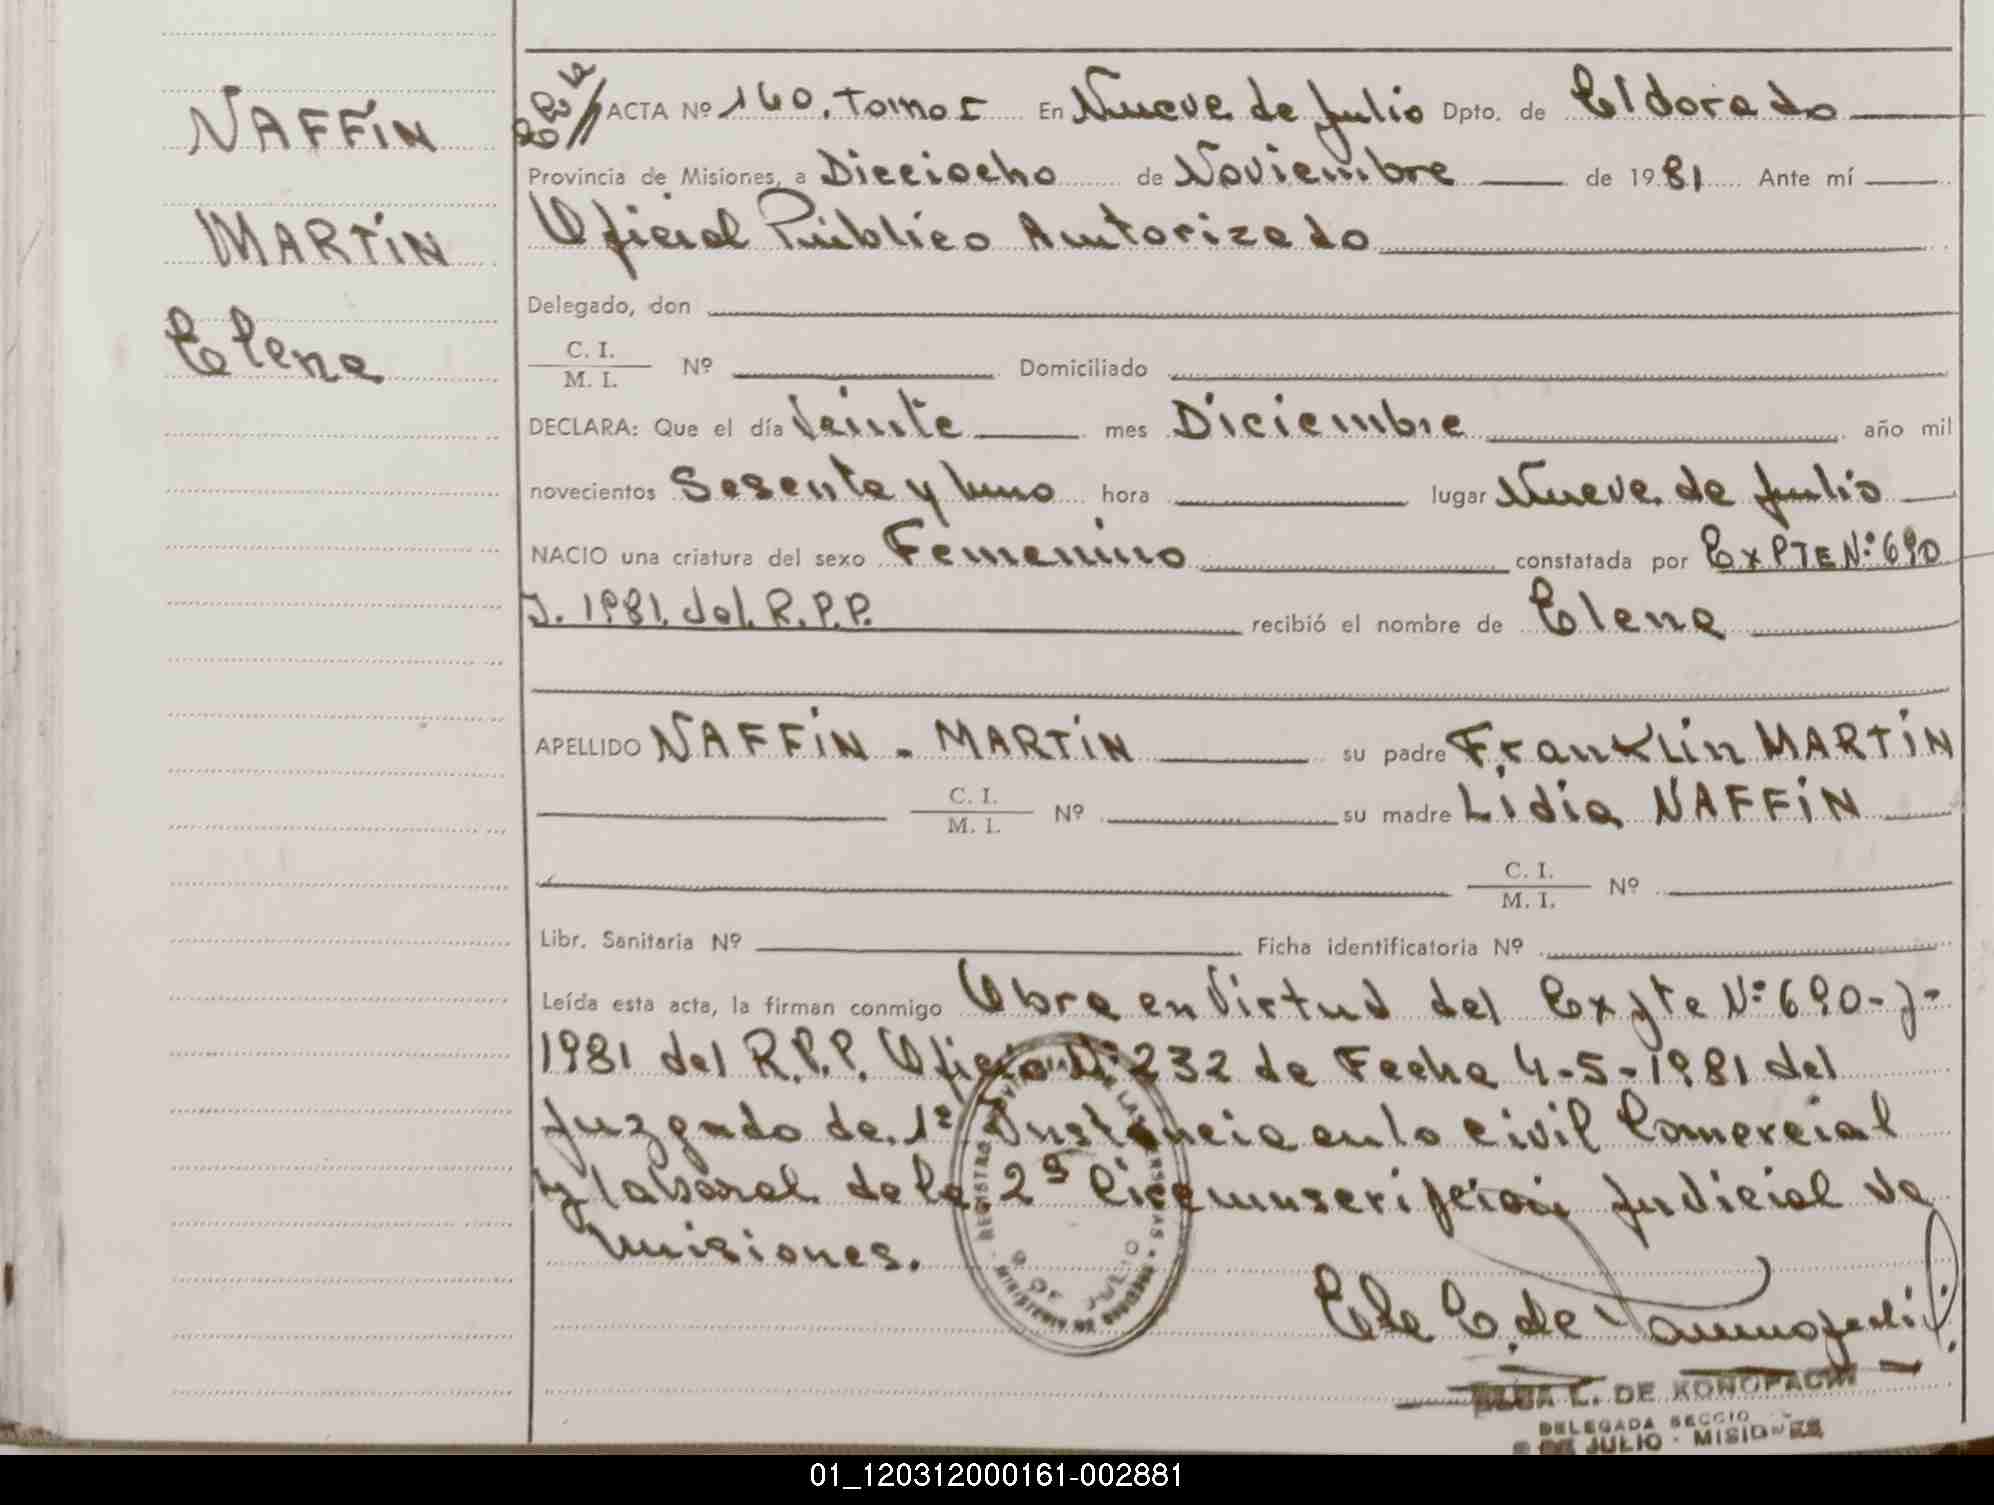 NAFFÍN
MARTÍN
Elena
ACTA Nº 160. Tomo I En Nueve de Julio Dpto. de Eldorado
Provincia de Misiones, a Dieciocho de Noviembre de 1981 Ante mí
Oficial Público Autorizado
Delegado, don
C. I.
M. I. Nº Domiciliado
DECLARA: Que el día Veinte mes Diciembre año mil
novecientos Sesenta y uno hora lugar Nueve de Julio
NACIO una criatura del sexo Femenino constatada por EXPTE Nº 690
J. 1981 del R.P.P. recibió el nombre de Elena
APELLIDO NAFFÍN - MARTÍN su padre Franklin MARTÍN
C. I.
M. I. Nº su madre Lidia NAFFÍN
C. I.
M. I. Nº
Libr. Sanitaria Nº Ficha identificatoria Nº
Leída esta acta, la firman conmigo Obra en Virtud del Expte Nº 690-J-
1981 del R.P.P. Oficio Nº 232 de Fecha 4-5-1981 del
Juzgado de 1ª Instancia en lo Civil Comercial
y laboral de la 2ª Circunscripción Judicial de
Misiones.
REGISTRO DE LAS PERSONAS
9 DE JULIO
MINISTERIO DE GOBIERNO
L. DE KONOPACKI
DELEGADA SECCIO
9 DE JULIO - MISIONES
01_120312000161-002881